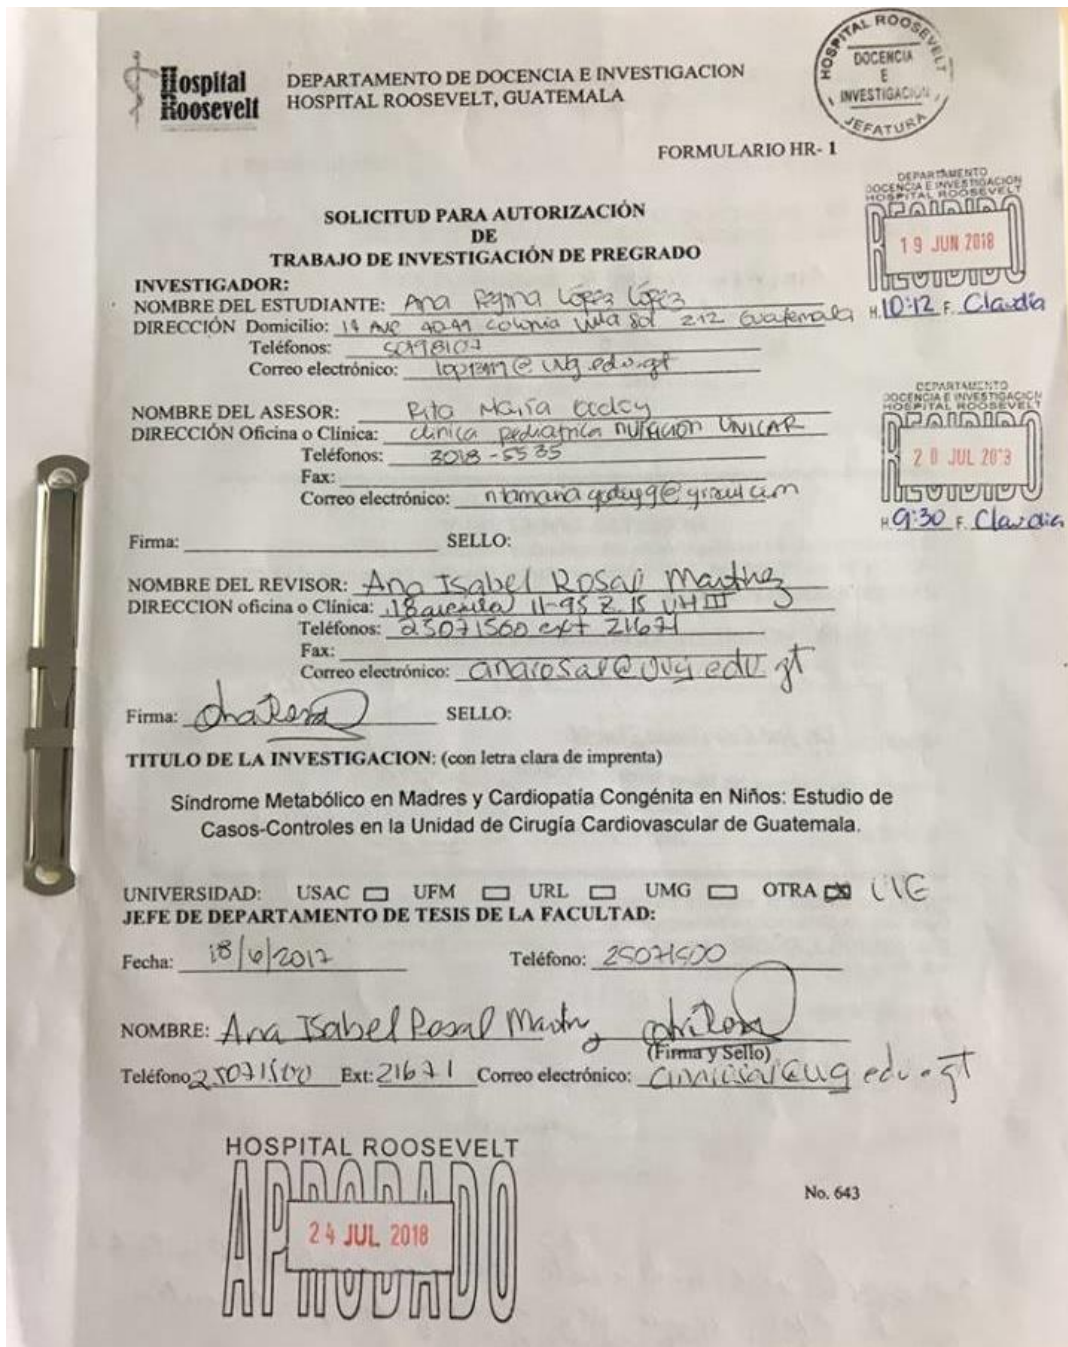 HOSPITAL ROOSEVELT
DOCENCIA
E
INVESTIGACION
JEFATURA
Hospital
Roosevelt
DEPARTAMENTO DE DOCENCIA E INVESTIGACION
HOSPITAL ROOSEVELT, GUATEMALA
FORMULARIO HR- 1
DEPARTAMENTO
DOCENCIA E INVESTIGACION
HOSPITAL ROOSEVELT
RECIBIDO
19 JUN 2018
H. 10:12 F. Claudia
SOLICITUD PARA AUTORIZACIÓN
DE
TRABAJO DE INVESTIGACIÓN DE PREGRADO
INVESTIGADOR:
NOMBRE DEL ESTUDIANTE: Ana Regina López López
DIRECCIÓN Domicilio: 19 Ave 40-49 Colonia Villa Sol Z.12 Guatemala
Teléfonos:
Correo electrónico:
DEPARTAMENTO
DOCENCIA E INVESTIGACION
HOSPITAL ROOSEVELT
RECIBIDO
20 JUL 2018
H. 9:30 F. Claudia
NOMBRE DEL ASESOR: Rita María Godoy
DIRECCIÓN Oficina o Clínica: clinica pediatrica nutricion UNICAR
Teléfonos: 3018-5535
Fax:
Correo electrónico:
Firma: SELLO:
NOMBRE DEL REVISOR: Ana Isabel Rosal Martinez
DIRECCION oficina o Clínica: 18 avenida 11-95 Z. 15 VH III
Teléfonos: 25071500 ext 21671
Fax:
Correo electrónico: anarosal@uvg.edu.gt
Firma: SELLO:
TITULO DE LA INVESTIGACION: (con letra clara de imprenta)
Síndrome Metabólico en Madres y Cardiopatía Congénita en Niños: Estudio de
Casos-Controles en la Unidad de Cirugía Cardiovascular de Guatemala.
UNIVERSIDAD: USAC UFM URL UMG OTRA
JEFE DE DEPARTAMENTO DE TESIS DE LA FACULTAD:
Fecha: 18/6/2017 Teléfono: 25071500
NOMBRE: Ana Isabel Rosal
(Firma y Sello)
Teléfono 25071500 Ext: 21671 Correo electrónico:
HOSPITAL ROOSEVELT
APROBADO
24 JUL 2018
No. 643